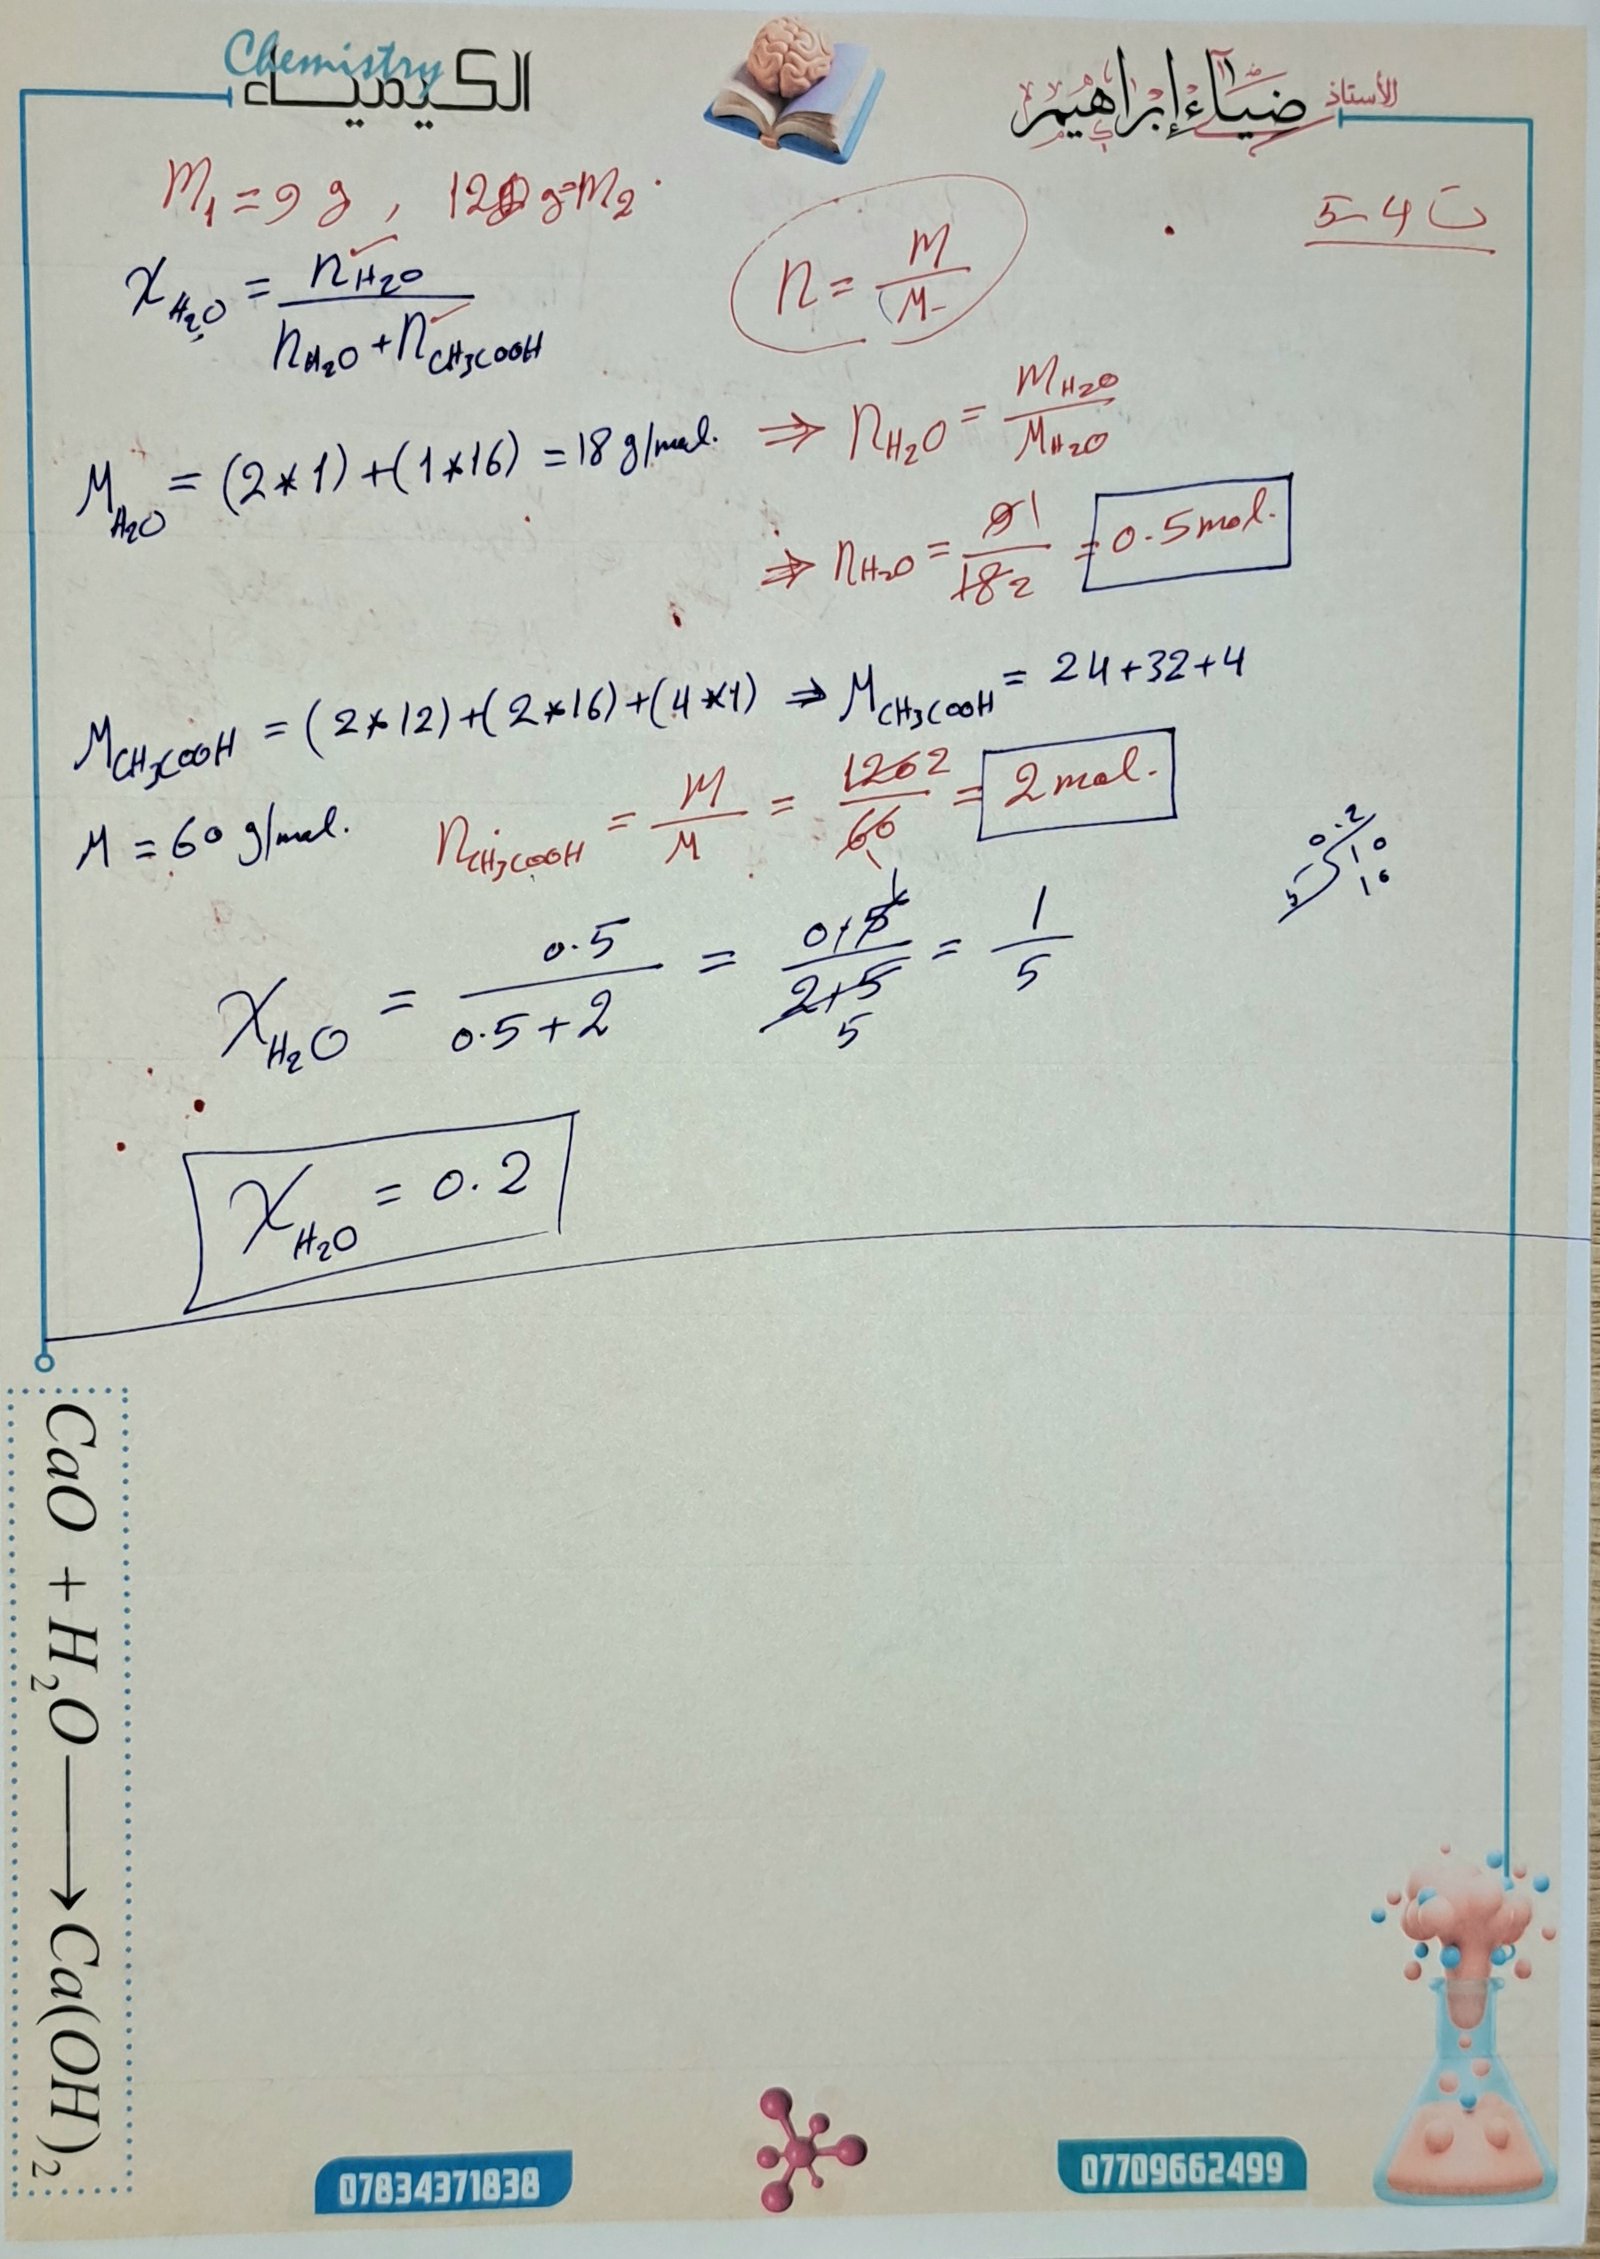 Chemistry
الكيمياء
الأستاذ ضياء إبراهيم
m₁ = 9 g , 120 g = m₂
ت 4-5
χ_H₂O = n_H₂O / (n_H₂O + n_CH₃COOH)
n = m / M
M_H₂O = (2*1) + (1*16) = 18 g/mol. ⇒ n_H₂O = m_H₂O / M_H₂O
⇒ n_H₂O = 9 1 / 18 2 = 0.5 mol.
M_CH₃COOH = (2*12) + (2*16) + (4*1) ⇒ M_CH₃COOH = 24+32+4
M = 60 g/mol. n_CH₃COOH = m / M = 120 2 / 60 1 = 2 mol.
0.2
5 10
10
χ_H₂O = 0.5 / (0.5 + 2) = 0,5 1 / 2,5 5 = 1 / 5
χ_H₂O = 0.2
CaO + H₂O ⟶ Ca(OH)₂
07834371838
07709662499